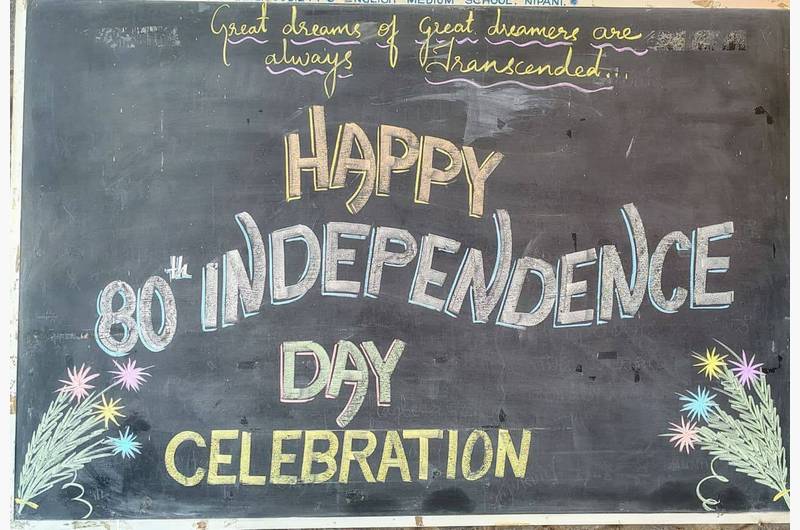 ENGLISH MEDIUM SCHOOL, NIPANI.
Great dreams of Great dreamers are
always Transcended...
HAPPY
80th INDEPENDENCE
DAY
CELEBRATION